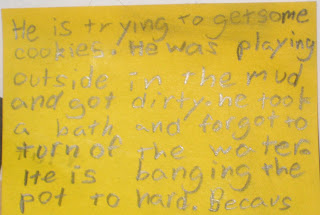 He is trying to getsome
cookies. He was playing
outside in the mud
and got dirty. he took
a bath and forgot to
torn of the water.
He is banging the
pot to hard. Becaus